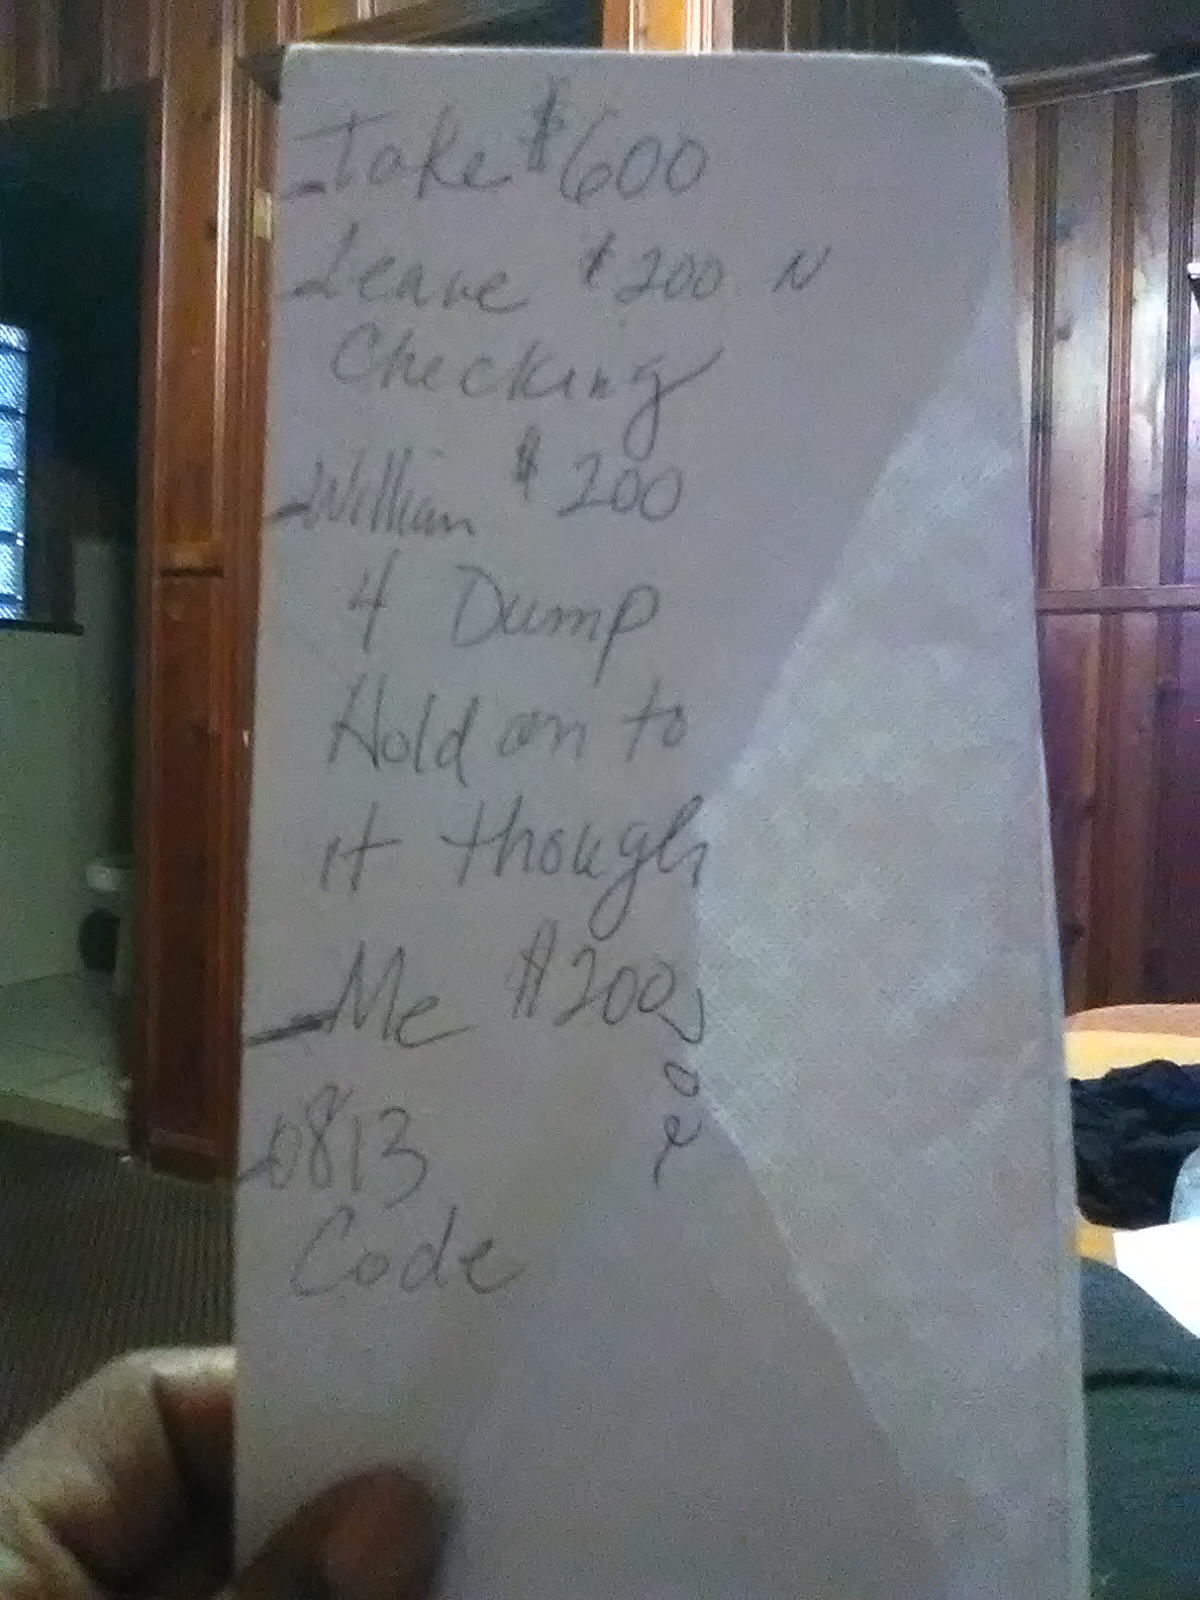 -Take $600
Leave $200 N
Checking
-William $200
4 Dump
Hold on to
it though
-Me $200
-0813
Code